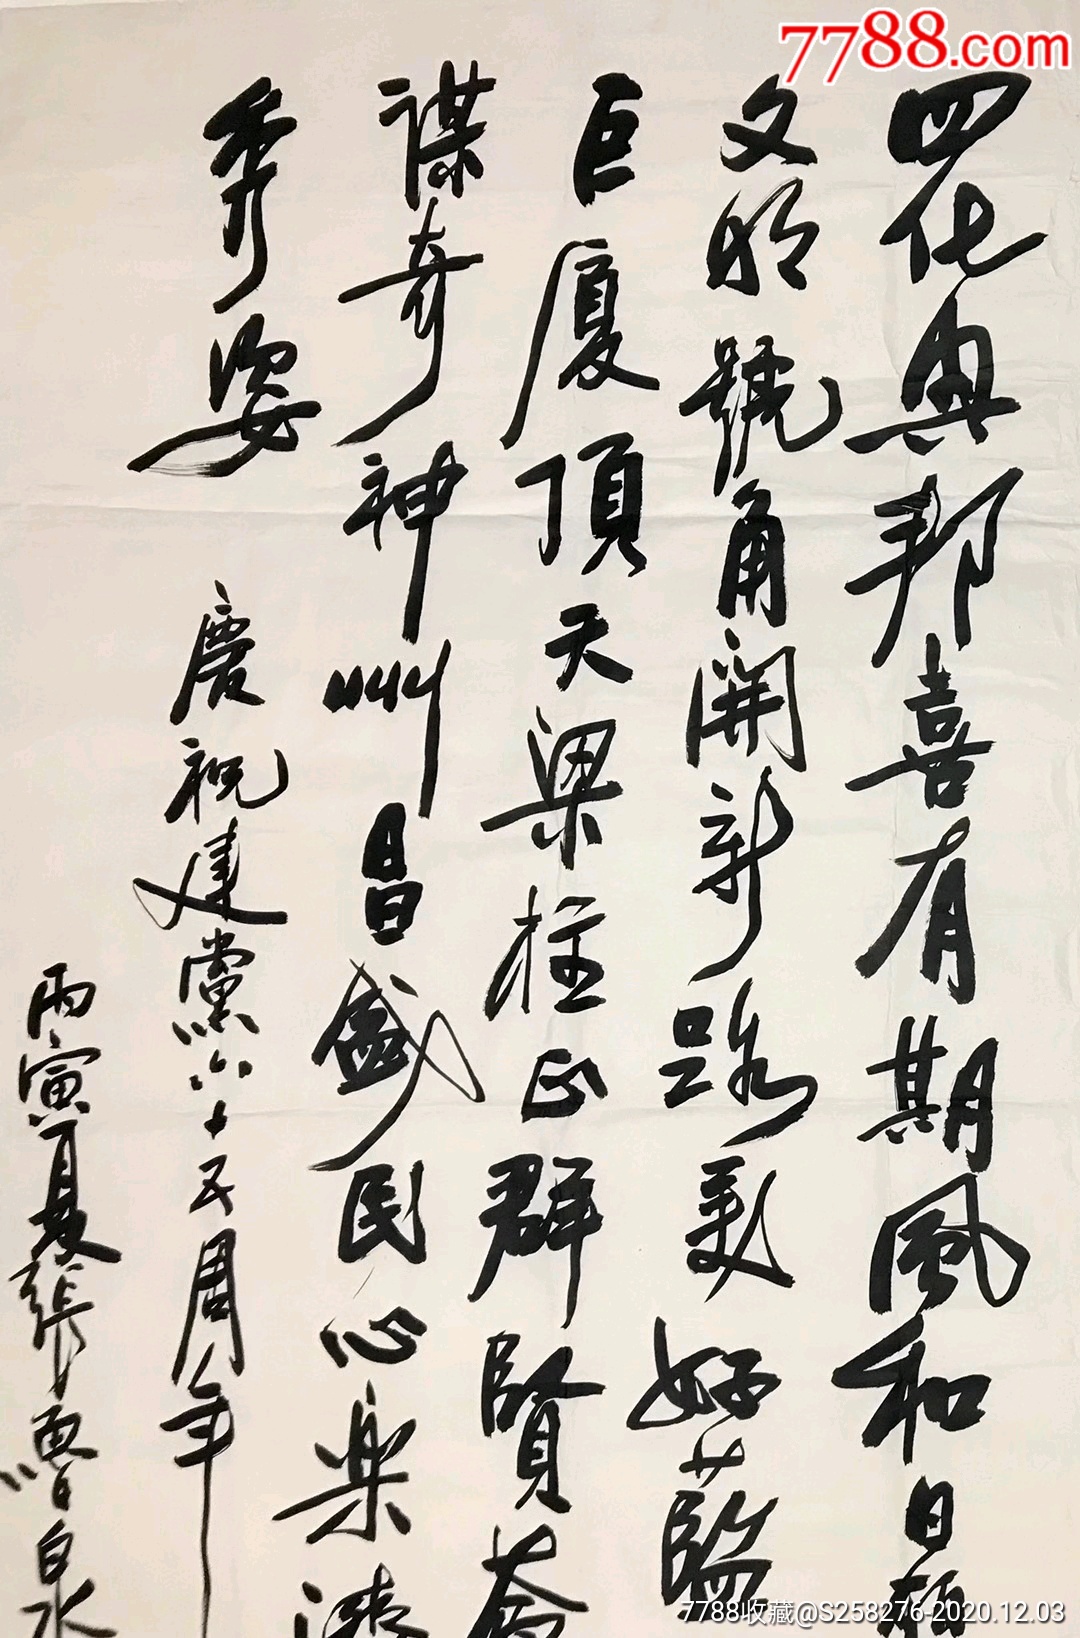 7788.com
四化興邦喜有期風和日
文明號角開新路美好藍
巨廈頂天梁柱正群賢薈
謀奇神州昌盛民心樂
秀姿
慶祝建黨六十五周年
丙寅夏張白泉
7788收藏@S258276-2020.12.03